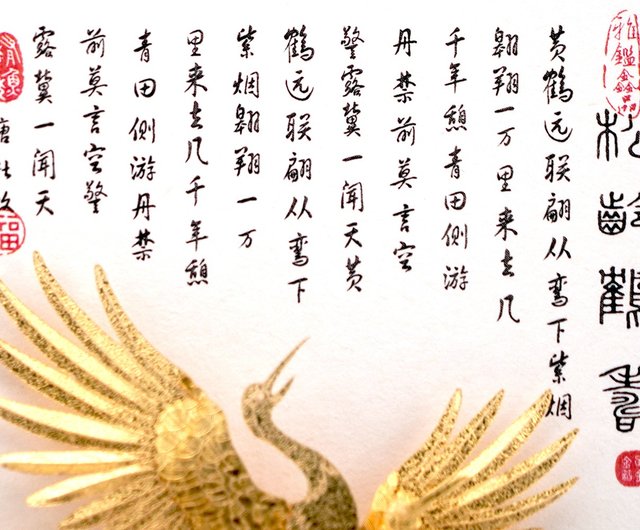 松齡鶴壽
黄鹤远联翩从鸾下紫烟
翱翔一万里来去几
千年憩青田侧游
丹禁前莫言空
警露冀一闻天黄
鹤远联翩从鸾下
紫烟翱翔一万
里来去几千年憩
青田侧游丹禁
前莫言空警
露冀一闻天
唐
福